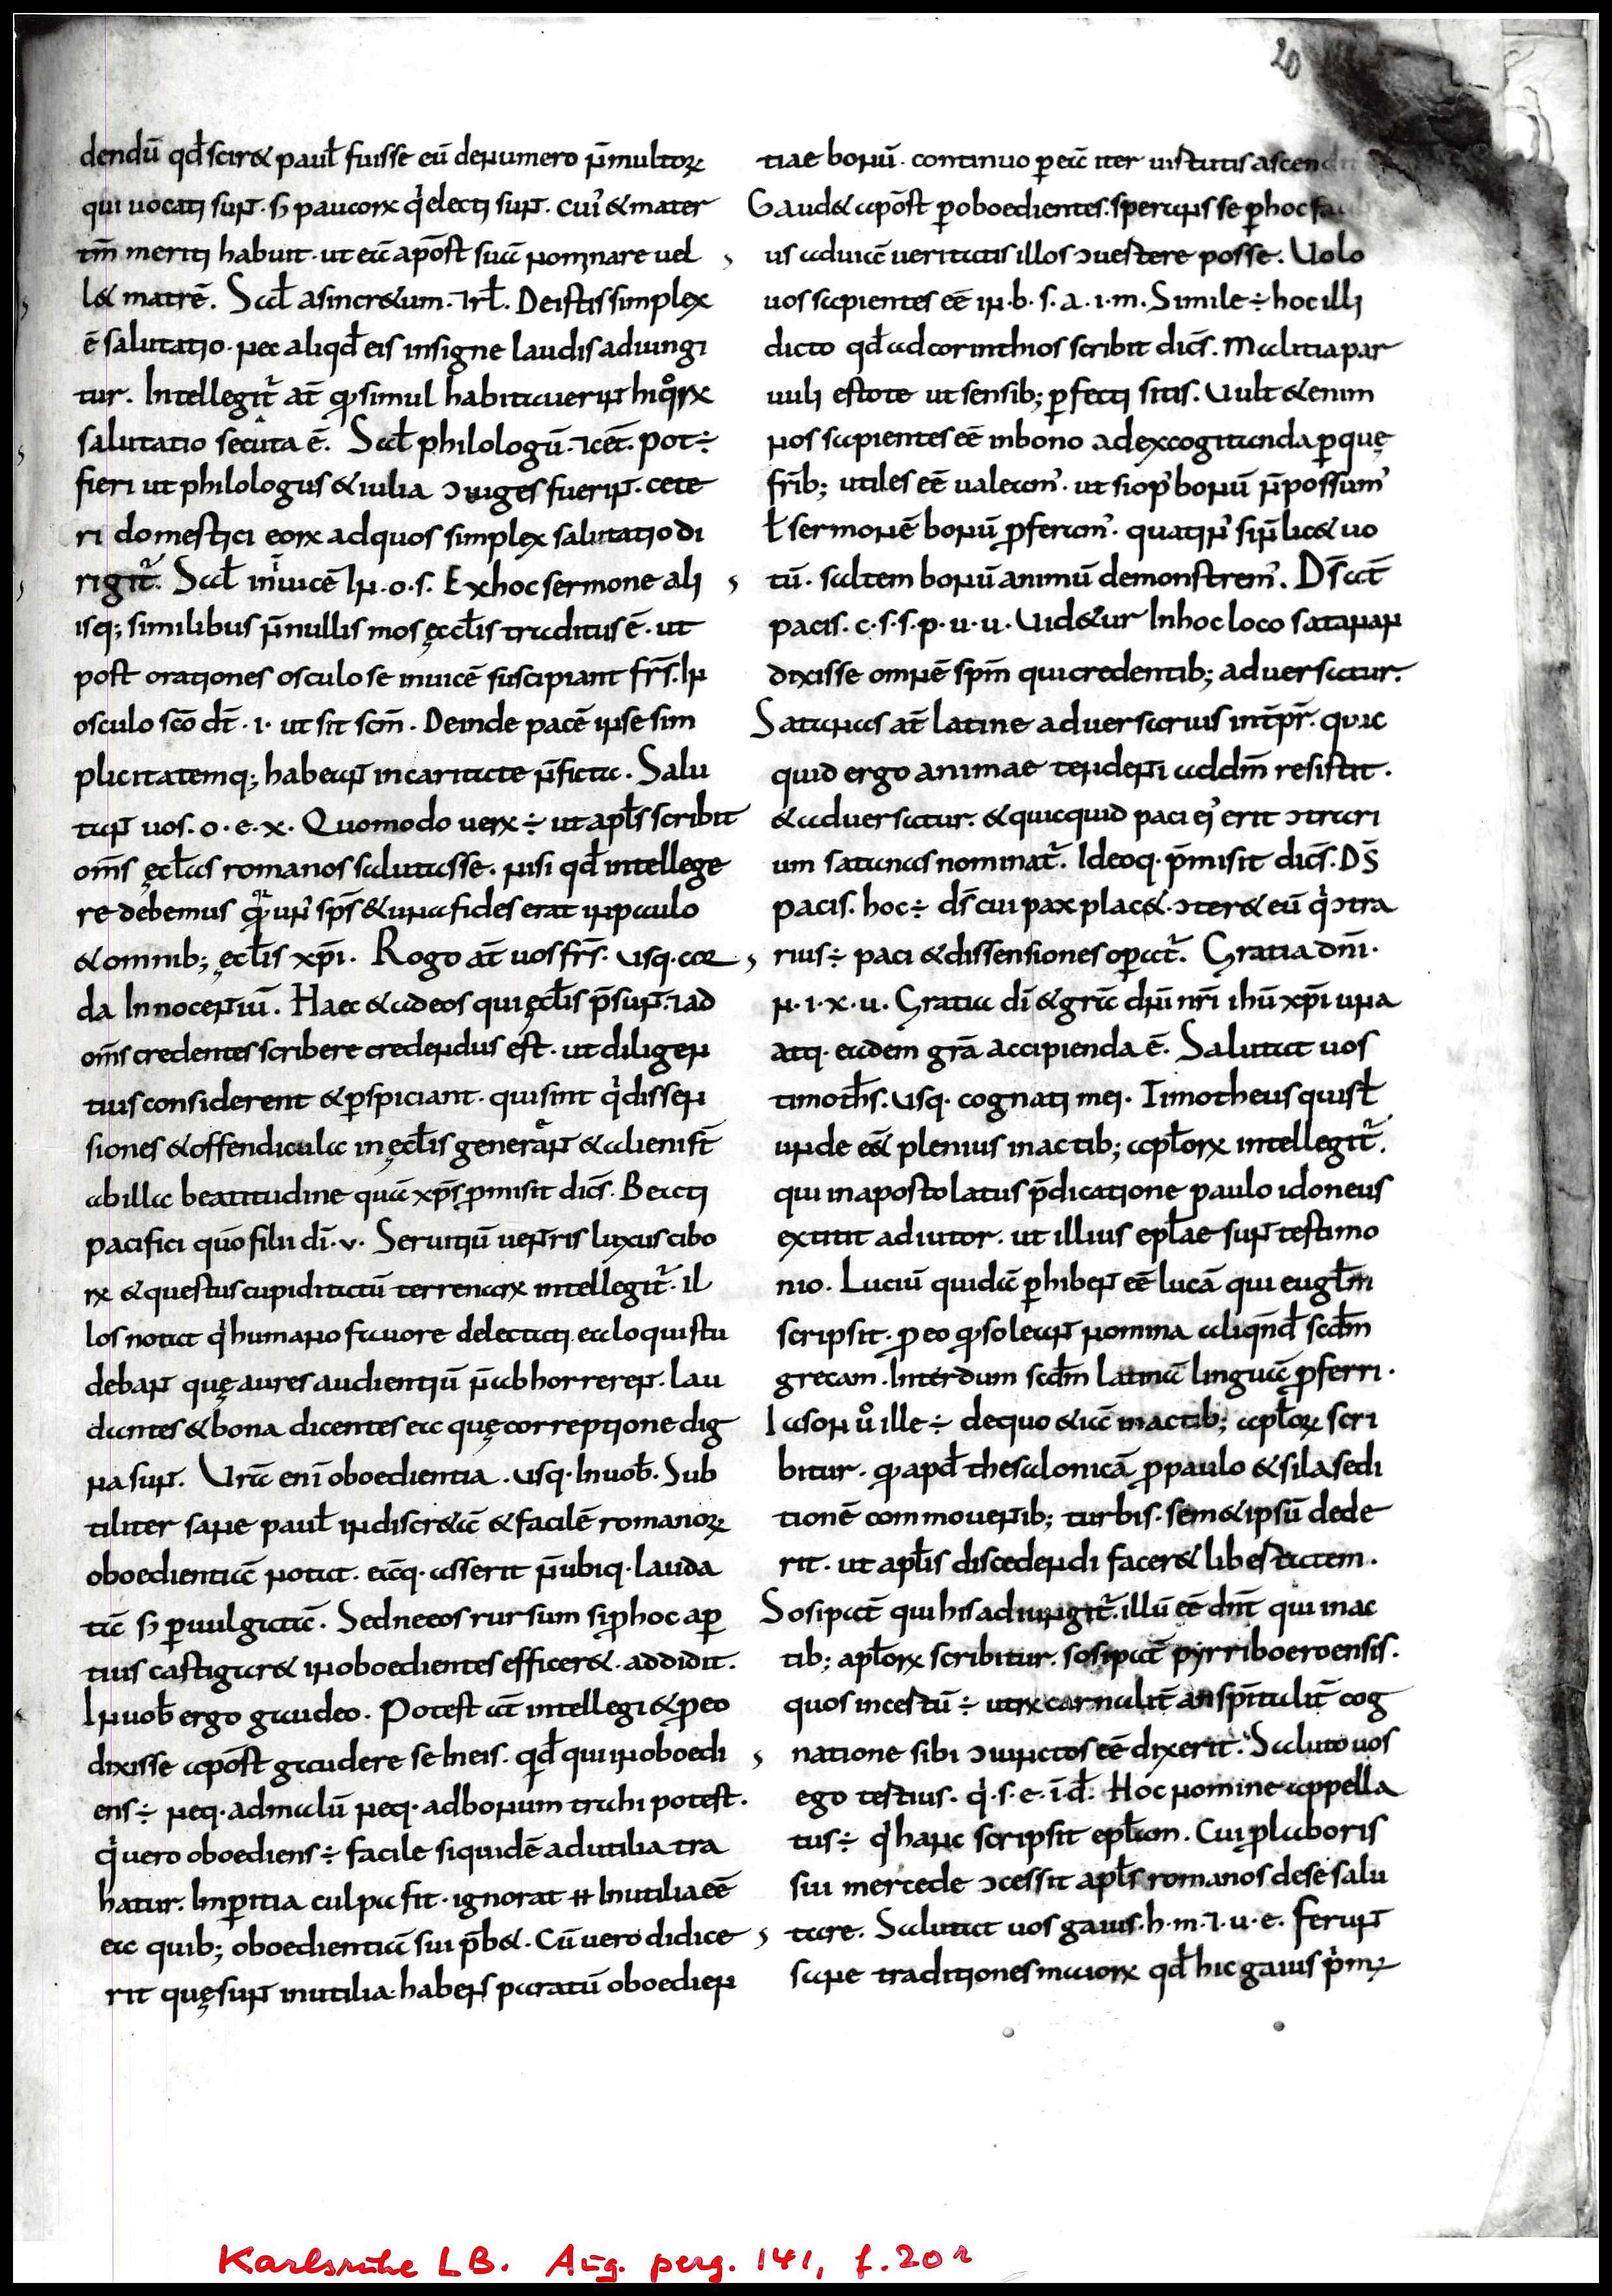 20
dendū qđ scir& pauł fuisse eū denumero n̄multoꝝ
qui uocati sunt · s; paucorꝝ q̇ electi sunt · cui᾽ & mater
tm̄ meriti habuit · ut eā apōst suā nominare uel
l& matrē . Sał asincr&um · ⁊rł . Deistis simplex
ē salutatio · nec aliqđ eis insigne laudis adiungi
tur . Intellegit̃ at̄ ꝙ simul habitauerint hiquorꝝ
salutatio secuta ē . Sał philologū · ⁊cet̄ · pot÷
fieri ut philologus & iulia ɔiuges fuerint · cete
ri domestici eorꝝ adquos simplex salutatio di
rigit̃ . Sał inuicē In · o · s . Exhoc sermone ali
isq; similibus n̄nullis mos ęccłis traditus ē · ut
post orationes osculo se inuicē suscipiant fr̄s · In
osculo sc̄o dt̄ · i · ut sit scm̄ . Deinde pacē ipse sim
plicitatemq; habeant in caritate n̄ficta . Salu
tant uos · o · e · x · Quomodo uerꝝ ÷ ut apłs scribit
om̄s ęcłas romanos salutasse · nisi qđ intellege
re debemus quia un᾽ sp̄s & una fides erat inpaulo
& omnib; ęcłis xp̄i . Rogo at̄ uos fr̄s · usq · cor
da Innocentiū . Haec & adeos qui ęcłis p̄sunt · ⁊ad
om̄s credentes scribere credendus est · ut diligen
tius considerent & ꝑspiciant · qui sint q̇ dissen
siones & offendicula in ęcłis generant & alieni st̄
abilla beatitudine quā xp̄s ꝓmisit dic̄s . Beati
pacifici qūo filii dī · v · Seruitiū uentris luxus cibo
rꝝ & questus cupiditatū terrenarꝝ intellegit̃ · il
los notat q̇ humano fauore delectati · ea loqui stu
debant quę aures audientiū n̄abhorrerent · lau
dantes & bona dicentes ea quę correptione dig
na sunt . Urā enī oboedientia · usq · Inuoƀ · Sub
tiliter sane pauł indiscr&ā & facilē romanoꝝ
oboedientiā notat · eāq · asserit n̄ubiq · lauda
tā s; ꝑuulgatā . Sed ne eos rursum si ꝑhoc aper
tius castigar& inoboedientes efficer& · addidit .
Inuoƀ ergo gaudeo . Potest at̄ intellegi & ꝓeo
dixisse apōst gaudere se Ineis · qđ qui inoboedi
ens÷ neq · admalū neq · adbonum trahi potest .
q̇ uero oboediens÷ facile siquidē adutilia tra
hatur . Inꝑitia culpa fit · ignorat ħ Inutilia eē
ea quib; oboedientiā sui p̄b& · Cū uero didice
rit quę sunt inutilia · habens paratū oboedien
tiae bonū · continuo ꝑeā iter uirtutis ascend
Gaud& apōst ꝑoboedientes · sperans se ꝑhoc
us aduiā ueritatis illos ɔuertere posse . Uolo
uos sapientes eē in · b · s · a · i · m · Simile÷ hoc illi
dicto qđ adcorinthios scribit dic̄s . Malitia par
uuli estote ut sensib; ꝑfecti sitis . Uult & enim
nos sapientes eē inbono adexcogitanda ꝑquę
fr̄ib; utiles eē ualeam᾽ · ut si op᾽ bonū n̄possum᾽
ł sermonē bonū ꝓferam᾽ · quatin᾽ si n̄ lic& uo
tū · saltem bonū animū demonstrem᾽ . Ds̄ at̄
pacis · c · s · s · p · u · u · Uid&ur Inhoc loco satanan
dixisse omnē spm̄ qui credentib; aduersatur .
Satanas at̄ latine aduersarius int̄pr̄ · quic
quid ergo animae tendenti addm̄ resistit .
& aduersatur · & quicquid paci ei᾽ erit ɔtrari
um satanas nominat̃ . Ideoq · p̄misit dic̄s . DS̄
pacis · hoc÷ ds̄ cui pax plac& · ɔter& eū q̇ ɔtra
rius÷ paci & dissensiones oꝑat̃ . Gratia dnī ·
n · i · x · u · Gratia dī & grā dn̄i nr̄i ihū xp̄i una
atq · eadem grā accipienda ē . Salutat uos
timotħs · usq · cognati mei . Timotheus quis÷
unde eē& plenius inactib; apłorꝝ intellegit̃ .
qui inapostolatus p̄dicatione paulo idoneus
extitit adiutor · ut illius epłae sunt testimo
nio . Luciū quidā ꝑhibent eē lucā qui eugłm
scripsit · ꝓeo ꝙ soleant nomina aliqn̄đ scđm
grecam · Interdum scđm latinā linguā ꝓferri .
Iason uͦ ille÷ dequo & iā inactib; apłoꝝ scri
bitur · ꝙ apđ thesalonicā ꝓpaulo & sila sedi
tionē commouentib; turbis · sem&ipsū dede
rit · ut apłis discedendi facer& libertatem .
Sosipat̄ qui his adiungit̃ · illū eē dn̄t qui inac
tib; apłorꝝ scribitur · sosipat̄ pyrriboeroensis .
quos incertū÷ utrꝝ carnalit̄ an sp̄italit̄ cog
natione sibi ɔiunctos eē dixerit . Saluto uos
ego tertius · q̇ · s · e · ī · đ · Hoc nomine appella
tus÷ q̇ hanc scripsit epłam . Cui ꝓlaboris
sui mercede ɔcessit apłs romanos dese salu
tare . Salutat uos gaius · h · m · ⁊ · u · e · ferunt
sane traditiones maiorꝝ qđ hic gaius p̓mꝰ
Karlsruhe LB. Aug. perg. 141, f. 20r